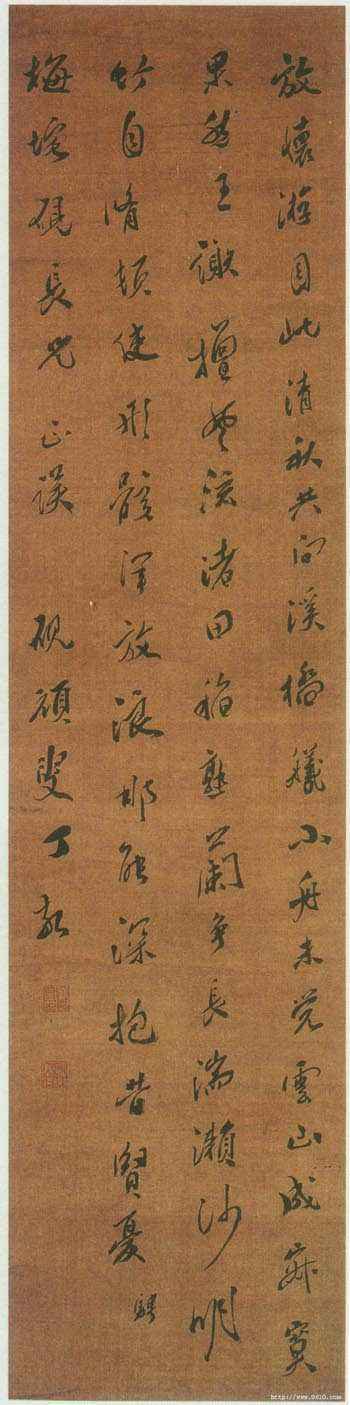 放懷游目此清秋共向溪橋艤小舟未覺雲山成寂寞
果然王謝擅風流渚田稻熟蘭爭長湍瀨沙明
竹自脩頓使形骸渾放浪那能深抱昔賢憂
梅垞硯長兄正誤 硯叟丁敬
http://www.9610.com